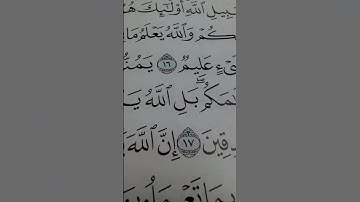 بِيلِ ٱللَّهِ أُوْلَٰٓئِكَ هُ
كُمْ وَٱللَّهُ يَعْلَمُ مَا
ىْءٍ عَلِيمٌ ١٦ يَمُنُّ
لَٰمَكُم ۖ بَلِ ٱللَّهُ يَ
دِقِينَ ١٧ إِنَّ ٱللَّهَ يَ
بِمَا تَعْمَلُونَ